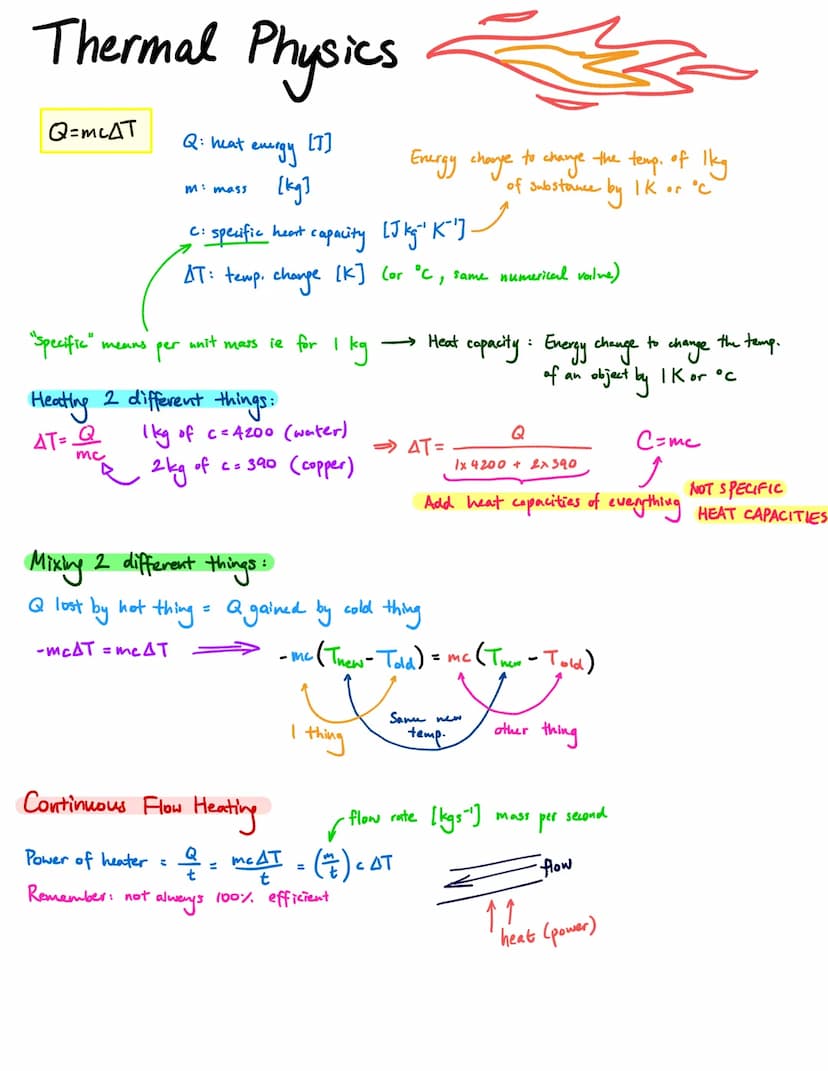 Thermal Physics
Q=mcΔT
Q: heat energy [J]
m: mass [kg]
Energy change to change the temp. of 1kg
of substance by 1K or °C
c: specific heat capacity [Jkg⁻¹K⁻¹]
ΔT: temp. change [K] (or °C, same numerical value)
"Specific" means per unit mass ie for 1 kg → Heat capacity: Energy change to change the temp.
of an object by 1K or °C
Heating 2 different things:
ΔT = Q/mc
1kg of c=4200 (water)
2kg of c=390 (copper)
⇒ ΔT = Q/(1×4200 + 2×390)
C=mc
Add heat capacities of everything
NOT SPECIFIC
HEAT CAPACITIES
Mixing 2 different things:
Q lost by hot thing = Q gained by cold thing
-mcΔT = mcΔT ⇒ -mc(Tnew-Told) = mc(Tnew-Told)
1 thing
Same new
temp.
other thing
Continuous Flow Heating
flow rate [kgs⁻¹] mass per second
Power of heater = Q/t = mcΔT/t = (m/t)cΔT
flow
Remember: not always 100% efficient
heat (power)